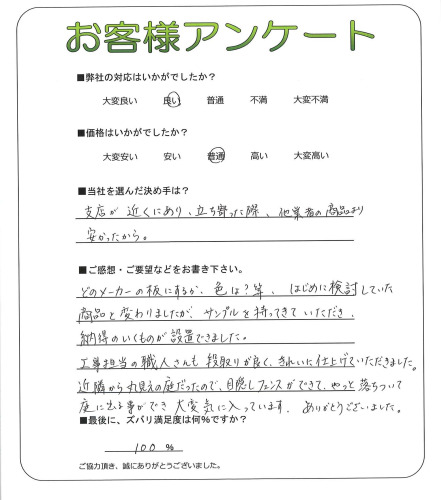 お客様アンケート
■弊社の対応はいかがでしたか？
大変良い 良い 普通 不満 大変不満
■価格はいかがでしたか？
大変安い 安い 普通 高い 大変高い
■当社を選んだ決め手は？
支店が近くにあり、立ち寄った際、他業者の商品より
安かったから。
■ご感想・ご要望などをお書き下さい。
どのメーカーの板にするか、色は？等、はじめに検討していた
商品と変わりましたが、サンプルを持ってきていただき、
納得のいくものが設置できました。
工事担当の職人さんも段取りが良く、きれいに仕上げていただきました。
近隣から丸見えの庭だったので、目隠しフェンスができて、やっと落ちついて
庭に出る事ができ大変気に入っています。ありがとうございました。
■最後に、ズバリ満足度は何%ですか？
100 %
ご協力頂き、誠にありがとうございました。